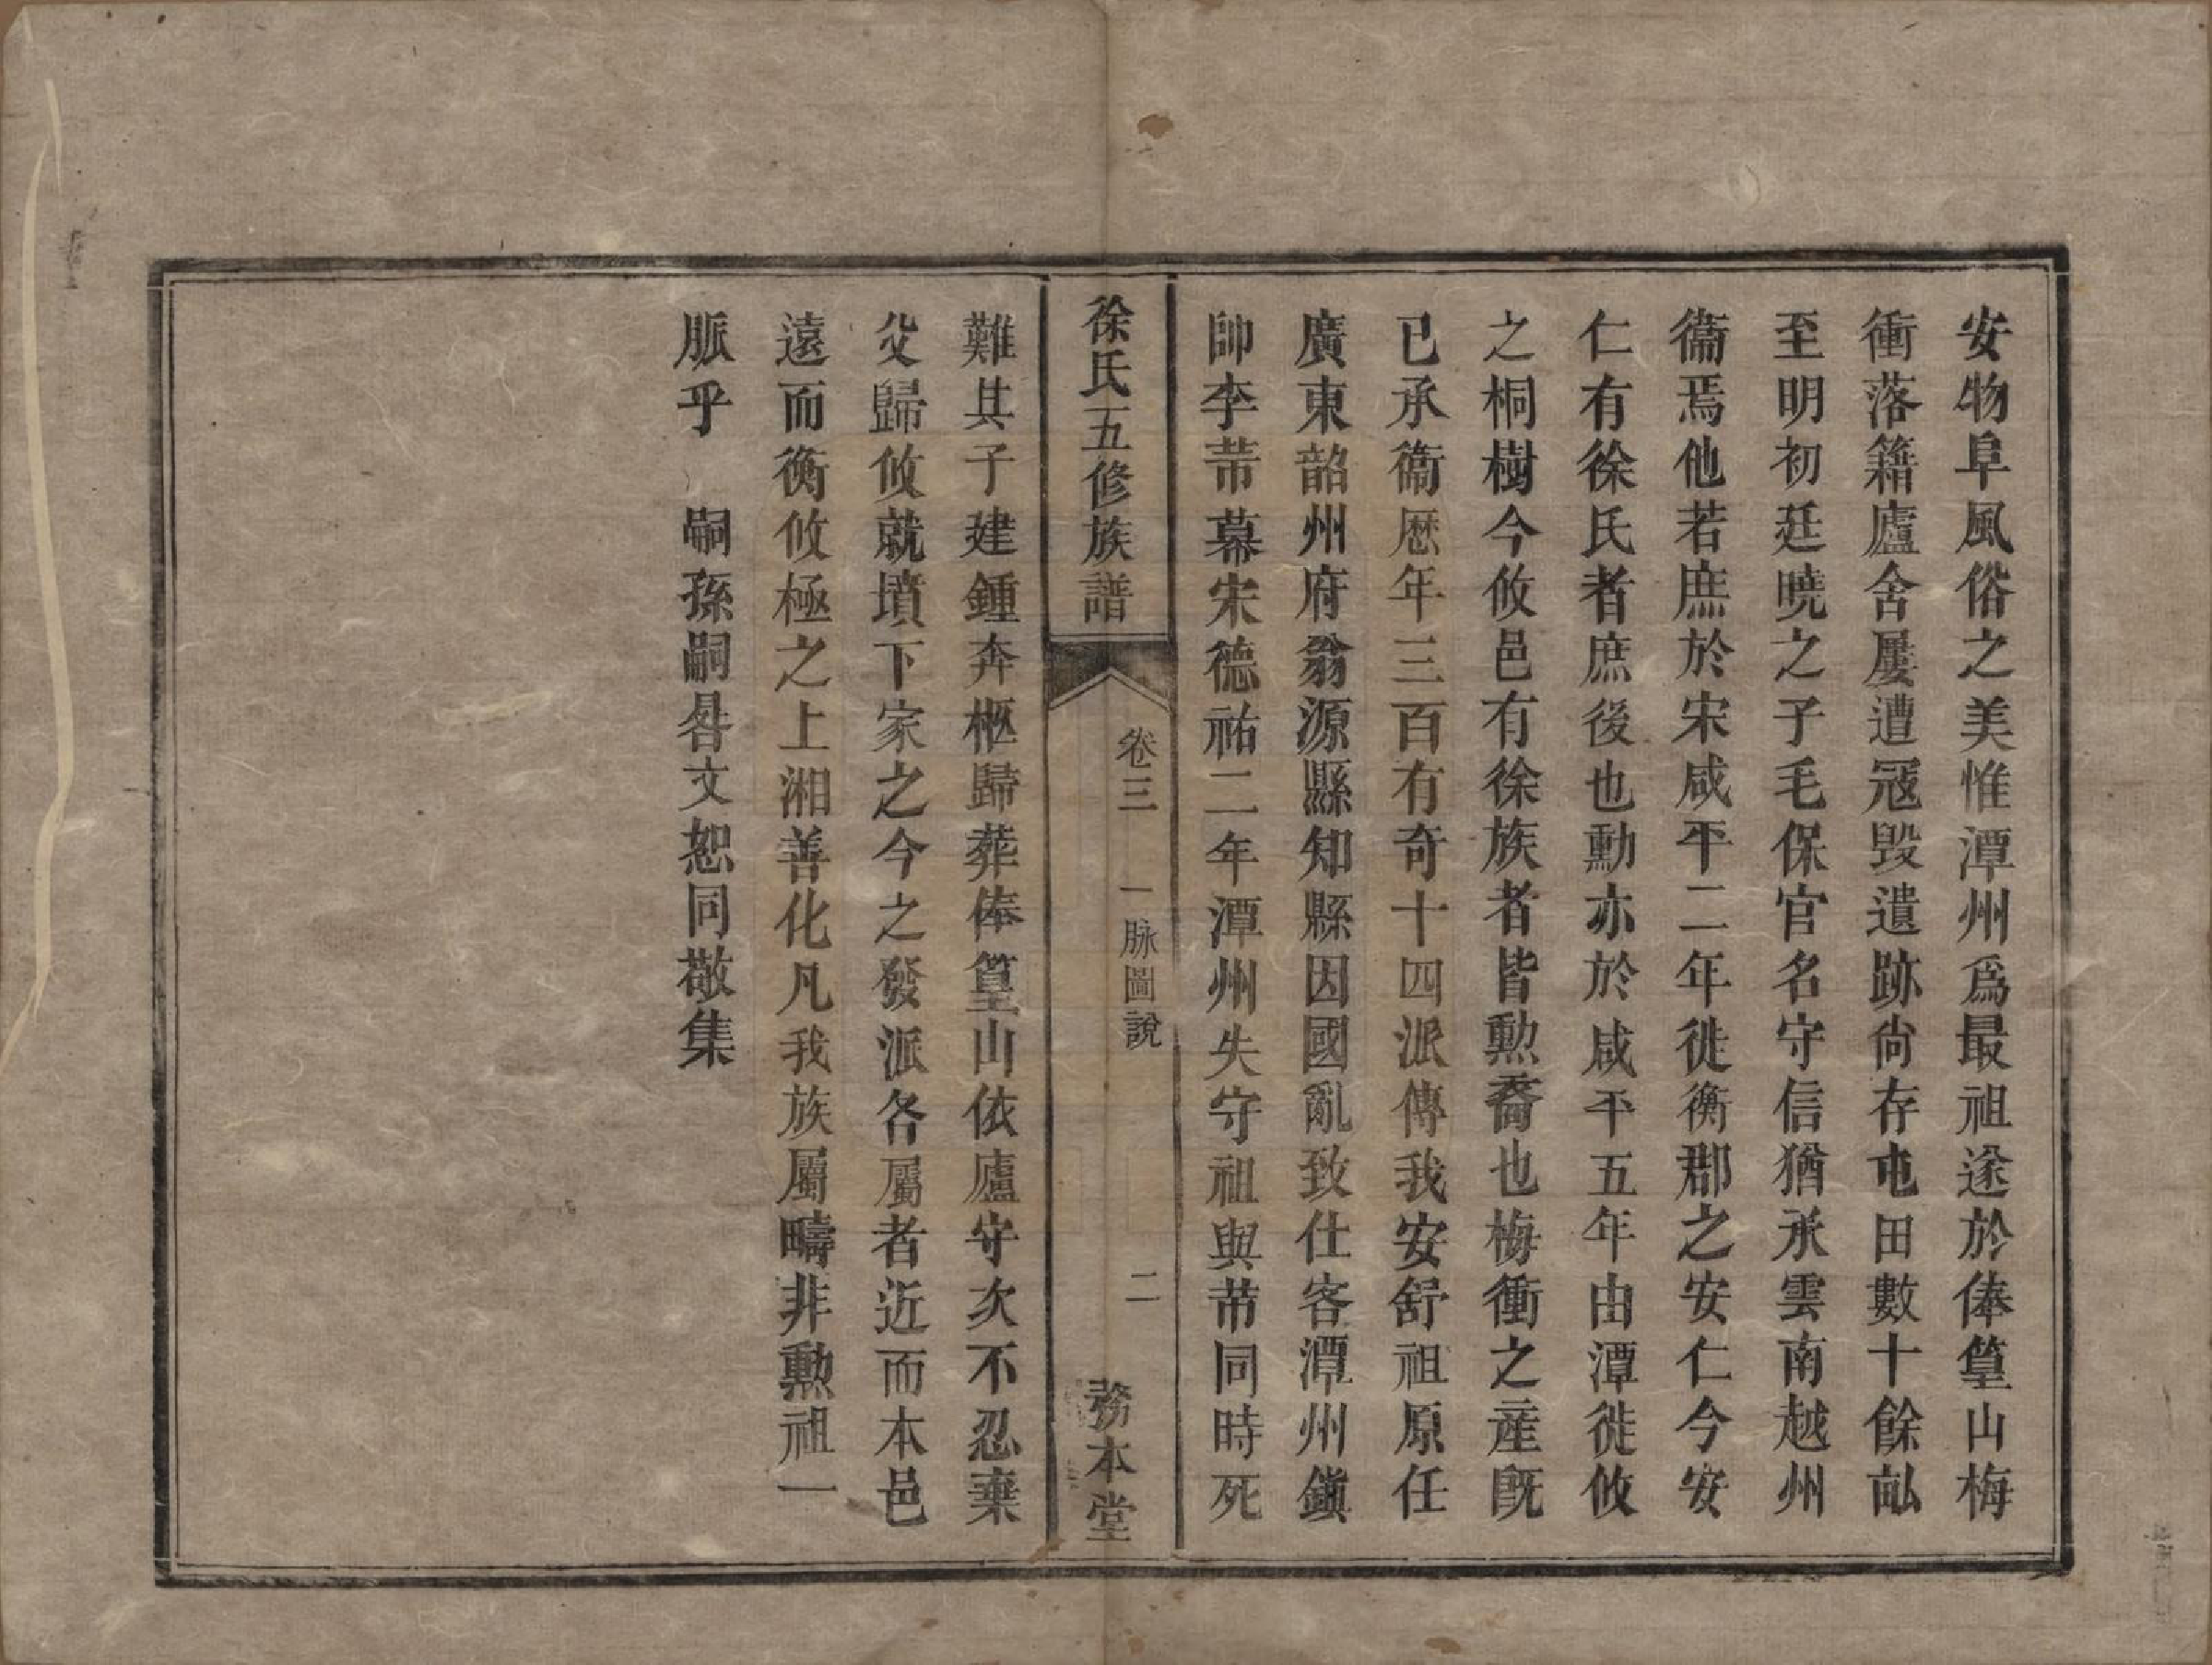 安物阜風俗之美惟潭州爲最祖遂於俸篁山梅
衝落籍廬舍屢遭冦毀遺跡尙存屯田數十餘畝
至明初廷曉之子毛保官名守信猶承雲南越州
衞焉他若庶於宋咸平二年徙衡郡之安仁今安
仁有徐氏者庶後也勳亦於咸平五年由潭徙攸
之桐樹今攸邑有徐族者皆勲裔也梅衝之産旣
已承衞厯年三百有奇十四派傳我安舒祖原任
廣東韶州府翁源縣知縣因國亂致仕客潭州鎭
帥李芾幕宋德祐二年潭州失守祖與芾同時死
徐氏五修族譜
卷三
一脉圖說
二
務本堂
難其子建鍾奔柩歸葬俸篁山依廬守次不忍棄
父歸攸就墳下家之今之發派各屬者近而本邑
遠而衡攸極之上湘善化凡我族屬疇非勲祖一
脈乎
嗣孫嗣晷文恕同敬集